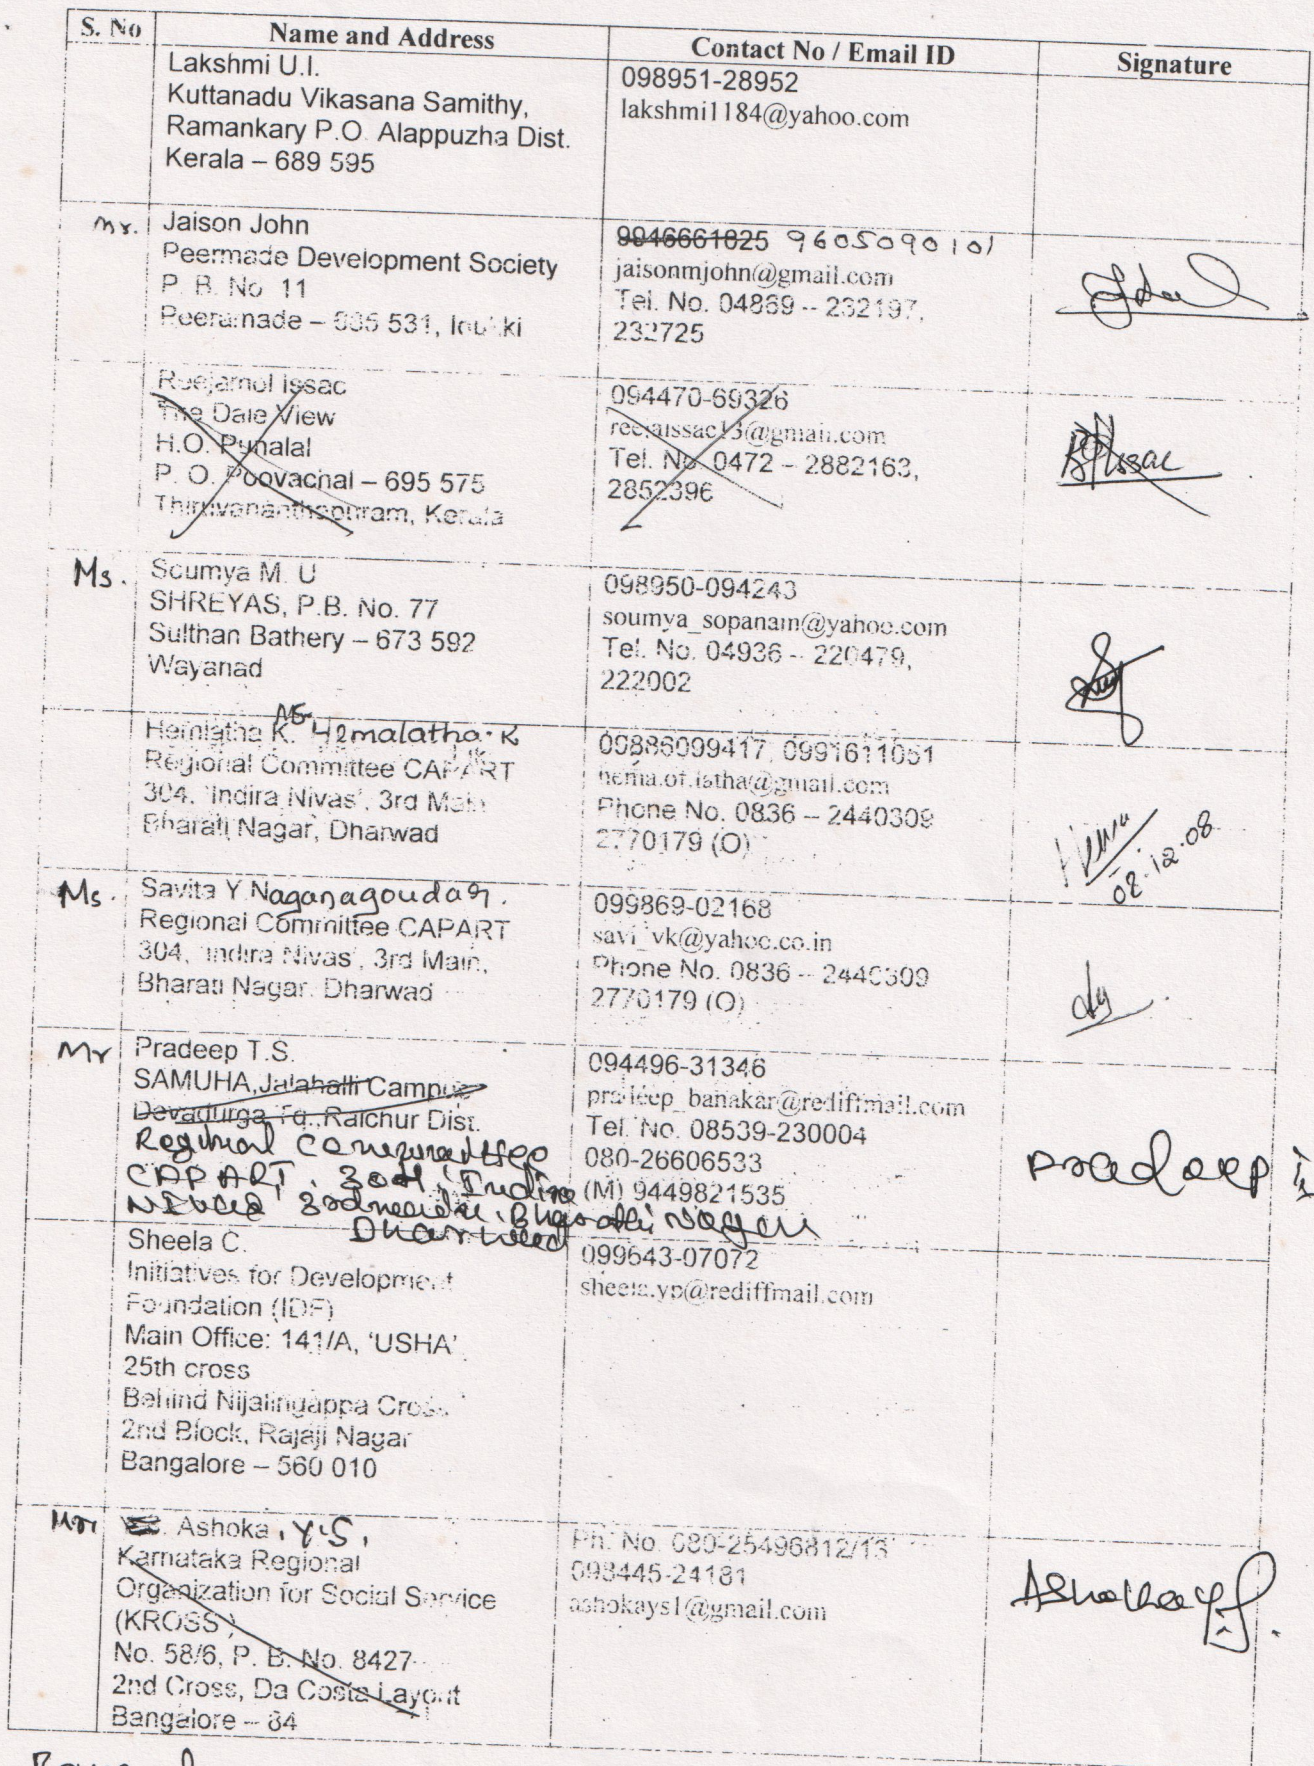 S. No Name and Address Contact No / Email ID Signature
Lakshmi U.I.
Kuttanadu Vikasana Samithy,
Ramankary P.O. Alappuzha Dist.
Kerala – 689 595
098951-28952
lakshmi1184@yahoo.com
Mr. Jaison John
Peermade Development Society
P. B. No. 11
Peeramade – 685 531, Idukki
9946661825 9605090101
jaisonmjohn@gmail.com
Tel. No. 04869 -- 232197,
232725
Reejamol Issac
The Dale View
H.O. Punalal
P. O. Poovachal – 695 575
Thiruvananthapuram, Kerala
094470-69326
reejaissac13@gmail.com
Tel. No. 0472 – 2882163,
2852396
Issac
Ms. Soumya M. U
SHREYAS, P.B. No. 77
Sulthan Bathery – 673 592
Wayanad
098950-094243
soumya_sopanam@yahoo.com
Tel. No. 04936 -- 220479,
222002
Hemlatha K. Hemalatha.K
Regional Committee CAPART
304, 'Indira Nivas', 3rd Main
Bharati Nagar, Dharwad
09886099417, 0991611051
hema.of.latha@gmail.com
Phone No. 0836 – 2440309
2770179 (O)
Hema
08.12.08
Ms. Savita Y Naganagoudar.
Regional Committee CAPART
304, 'Indira Nivas', 3rd Main,
Bharati Nagar, Dharwad
099869-02168
savi_vk@yahoo.co.in
Phone No. 0836 -- 2440309
2770179 (O)
Mr Pradeep T.S.
SAMUHA, Jalahalli Campus
Devadurga Tq., Raichur Dist.
Regional Committee
CAPART, 304, 'Indira
Nivas' 3rd main, Bharathi Nagar
Dharwad
094496-31346
pradeep_banakar@rediffmail.com
Tel. No. 08539-230004
080-26606533
(M) 9449821535
Pradeep
Sheela C.
Initiatives for Development
Foundation (IDF)
Main Office: 141/A, 'USHA'
25th cross
Behind Nijalingappa Cross
2nd Block, Rajaji Nagar
Bangalore – 560 010
099643-07072
sheela.yp@rediffmail.com
Mr. Ashoka, Y.S,
Karnataka Regional
Organization for Social Service
(KROSS)
No. 58/6, P. B. No. 8427
2nd Cross, Da Costa Layout
Bangalore – 84
Ph. No. 080-25496812/13
098445-24181
ashokays1@gmail.com
Ashoka Y.S.